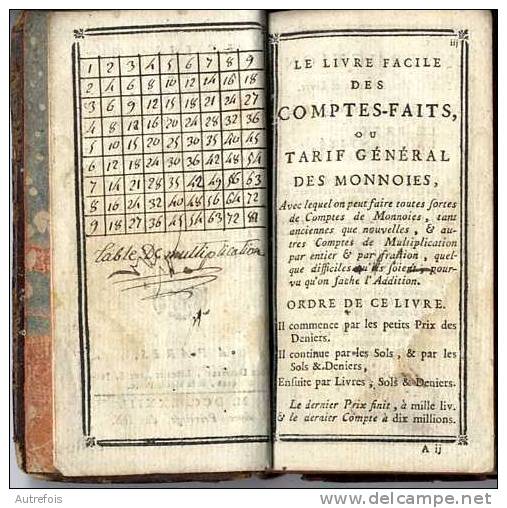 1 2 3 4 5 6 7 8 9
2 4 6 8 10 12 14 16 18
3 6 9 12 15 18 21 24 27
4 8 12 16 20 24 28 32 36
5 10 15 20 25 30 35 40 45
6 12 18 24 30 36 42 48 54
7 14 21 28 35 42 49 56 63
8 16 24 32 40 48 56 64 72
9 18 27 36 45 54 63 72 81
table De multiplication
iij
LE LIVRE FACILE
DES
COMPTES-FAITS,
OU
TARIF GÉNÉRAL
DES MONNOIES,
Avec lequel on peut faire toutes sortes
de Comptes de Monnoies, tant
anciennes que nouvelles, & au-
tres Comptes de Multiplication
par entier & par fraction, quel-
que difficiles qu'ils soient, pour-
vu qu'on sache l'Addition.
ORDRE DE CE LIVRE.
Il commence par les petits Prix des
Deniers.
Il continue par les Sols, & par les
Sols & Deniers,
Ensuite par Livres, Sols & Deniers.
Le dernier Prix finit, à mille liv.
& le dernier Compte à dix millions.
A ij
Autrefois
delcampe.net